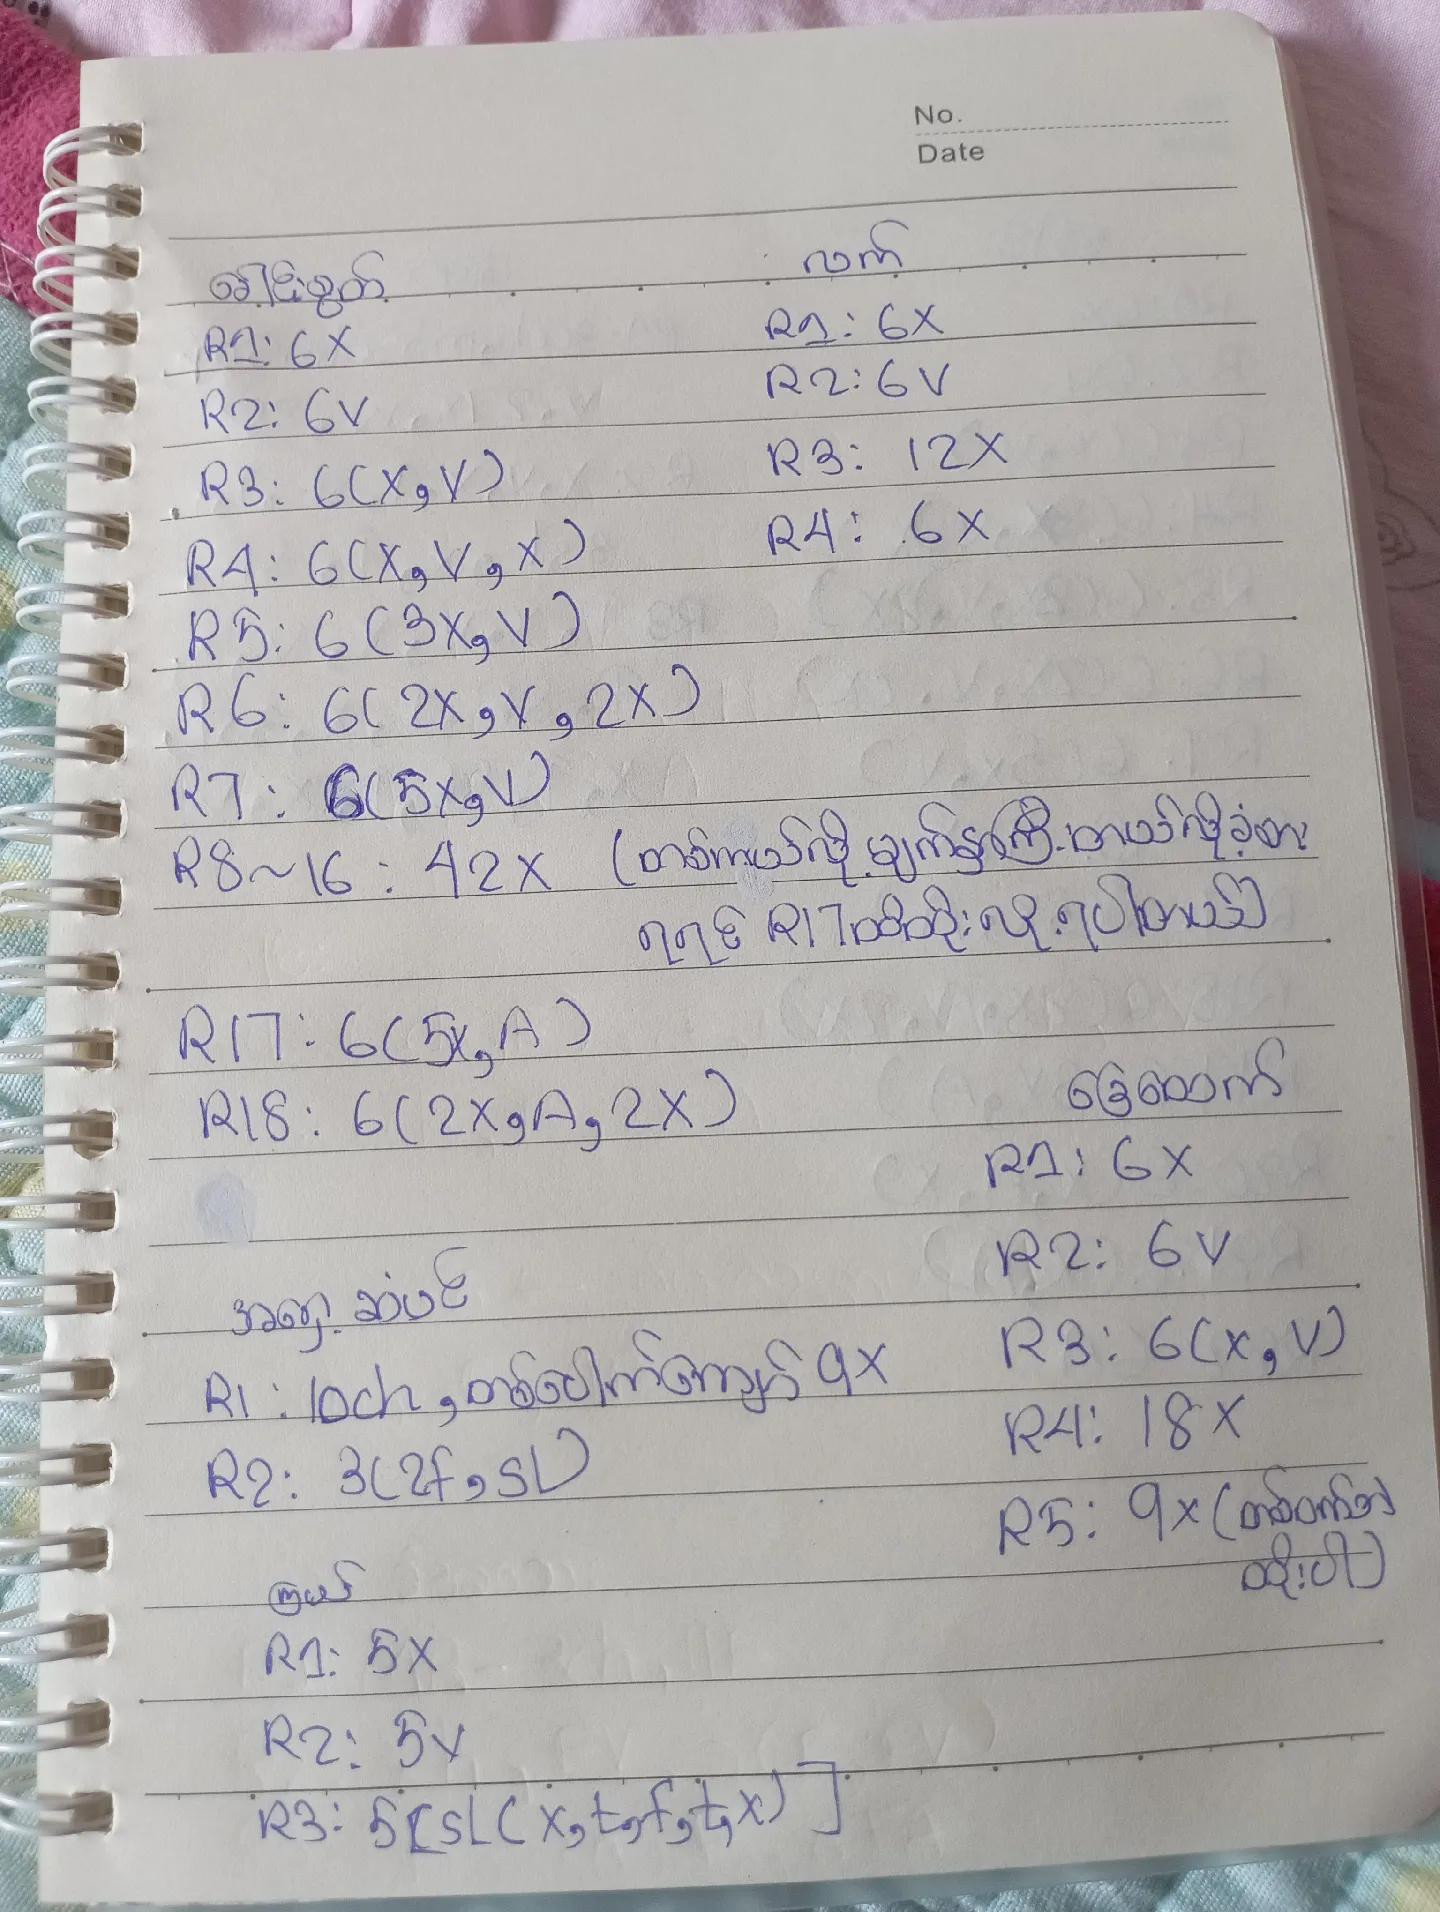 No.
Date
ခေါင်းစွတ်
R1: 6X
R2: 6V
R3: 6(X,V)
R4: 6(X,V,X)
R5: 6(3X,V)
R6: 6(2X,V,2X)
R7: 6(5X,V)
R8~16: 42X (တစ်ကယ်လို့မျက်နှာကြီးတယ်လို့ခံစား
ရရင် R17ထိထိုးလို့ရပါတယ်)
R17: 6(5X,A)
R18: 6(2X,A,2X)
လက်
R1: 6X
R2: 6V
R3: 12X
R4: 6X
ခြေထောက်
R1: 6X
R2: 6V
R3: 6(X,V)
R4: 18X
R5: 9X(တစ်ဝက်ဘဲ
ထိုးပါ)
အရှေ့ဆံပင်
R1: 10ch,တစ်ပေါက်ကျော် 9X
R2: 3(2f,sl)
ကြယ်
R1: 5X
R2: 5V
R3: 5[sl(x,t,f,t,x)]